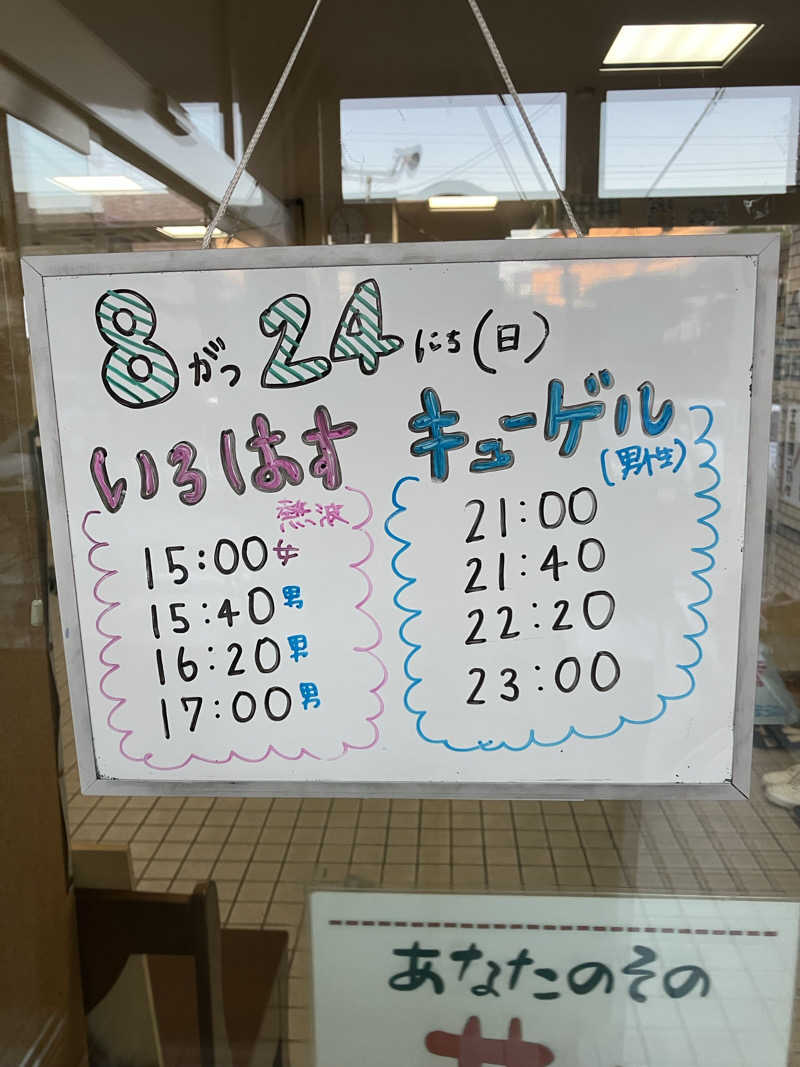 8がつ24にち(日)
いろはす
熱波
15:00女
15:40男
16:20男
17:00男
キューゲル
(男性)
21:00
21:40
22:20
23:00
あなたのその